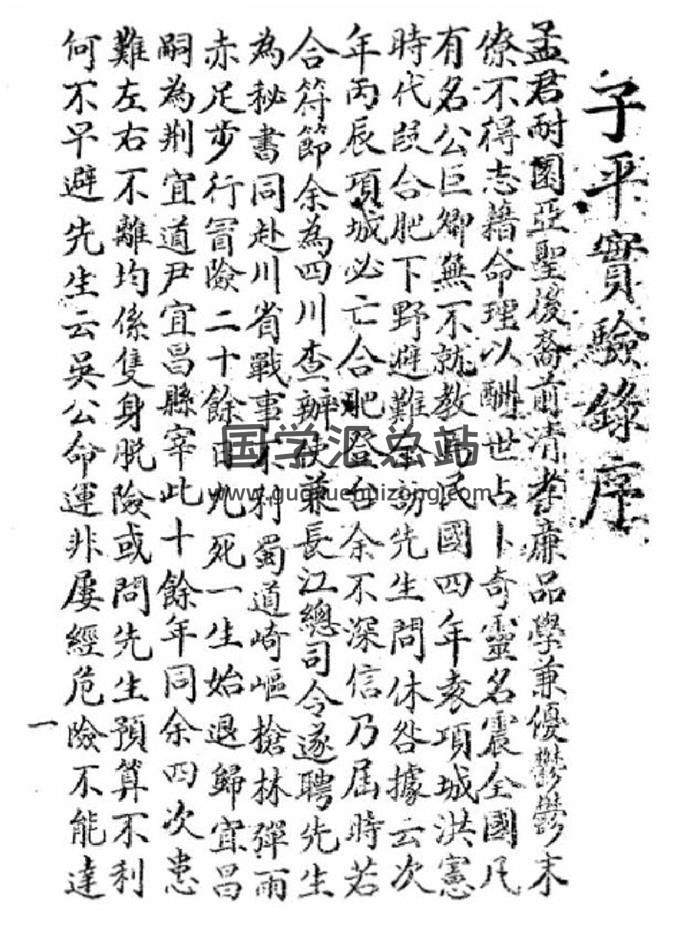 子平實驗錄序
孟君耐園亞聖後裔前清孝廉品學兼優鬱鬱末
僚不得志藉命理以酬世占卜奇靈名震全國凡
有名公巨卿無不就教焉民國四年袁項城洪憲
時代段合肥下野避難余訪先生問休咎據云次
年丙辰項城必亡合肥登台余不深信乃屆時若
合符節余為四川查辦使兼長江總司令遂聘先生
為秘書同赴川省戰事不利蜀道崎嶇搶林彈雨
赤足步行冒險二十餘日九死一生始退歸宜昌
嗣為荊宜道尹宜昌縣宰此十餘年同余四次患
難左右不離均係隻身脫險或問先生預算不利
何不早避先生云吳公命運非屢經危險不能達
一
国学汇总站
www.guoxuehuizong.com